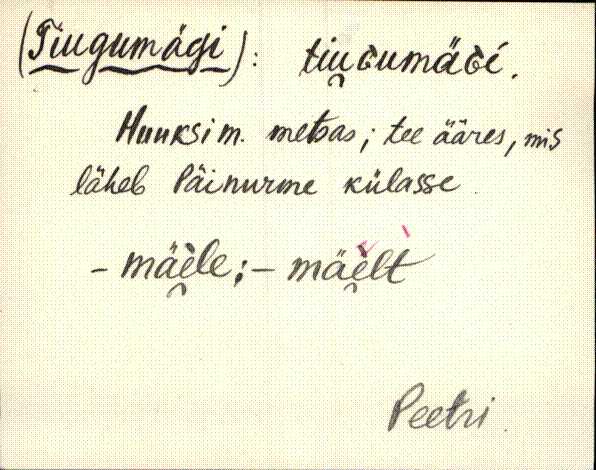 (Tiugumägi): tiu̯ɢumäɢi.
Huuksi m. metsas; tee ääres, mis
läheb Päinurme külasse.
– mäe̯le; – mäe̯lt
Peetri.